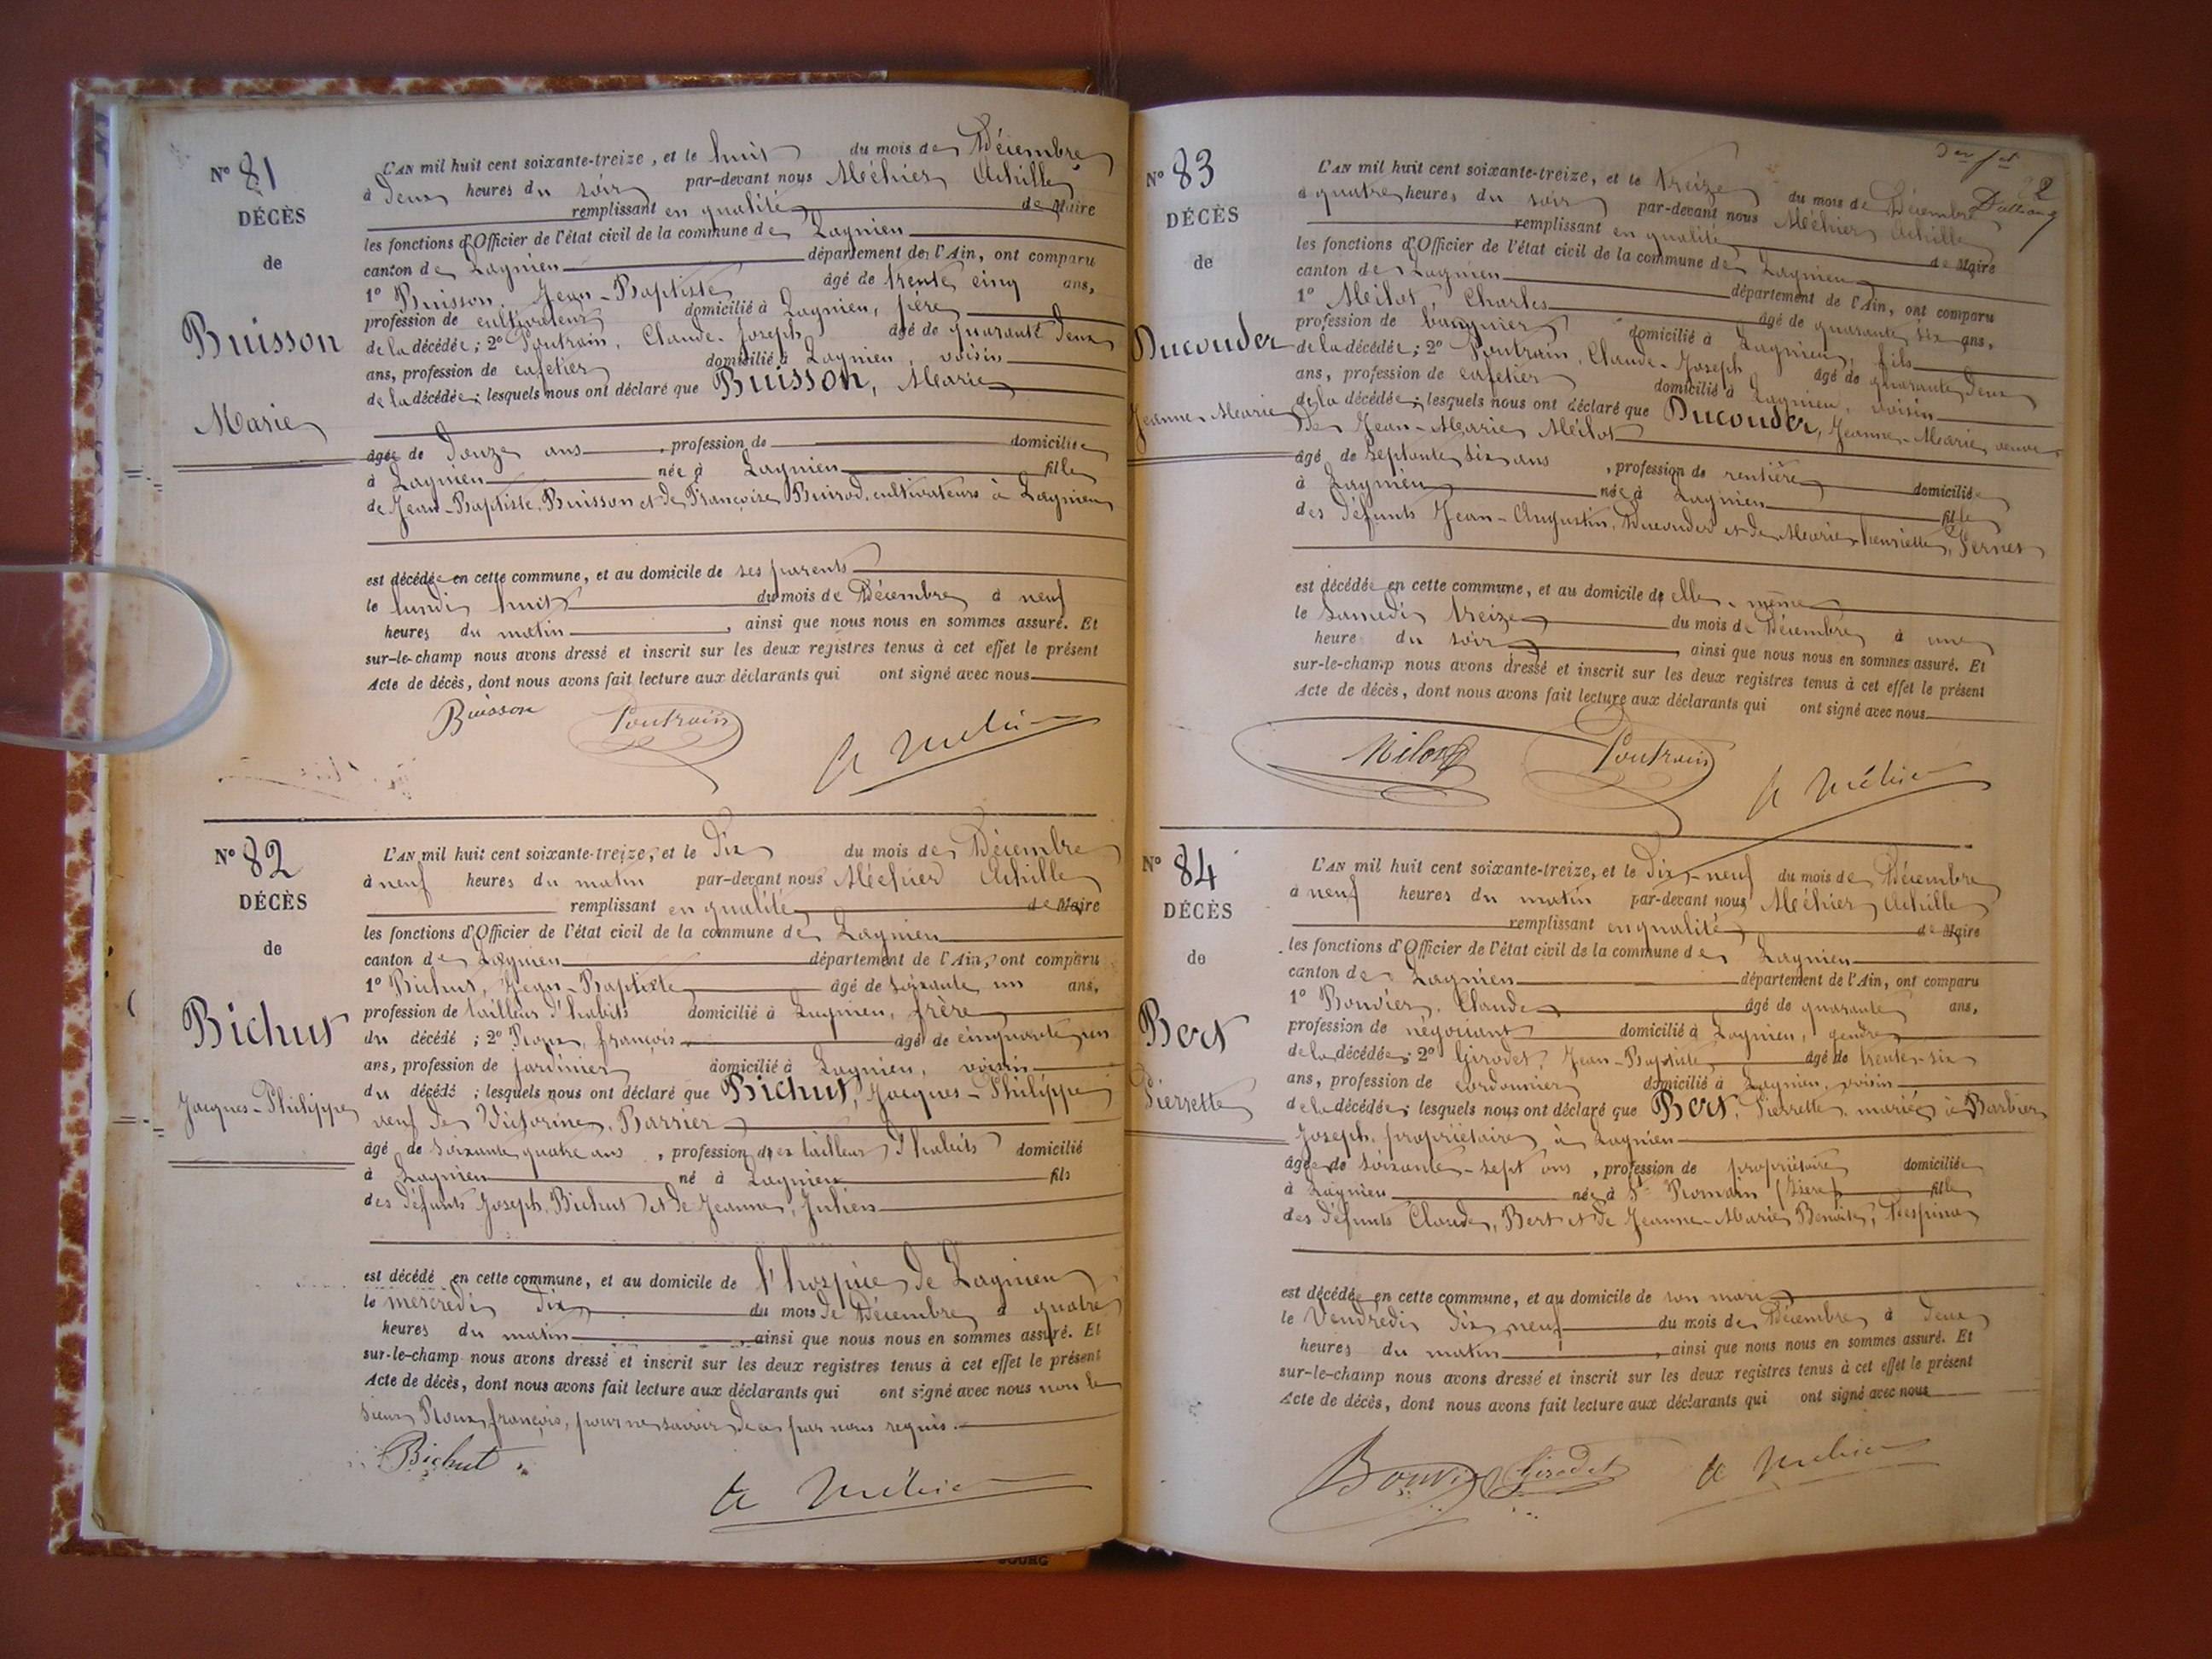 N° 81
DÉCÈS
de
Buisson
Marie
L'AN mil huit cent soixante-treize, et le huit du mois de Décembre
à Deux heures du soir par-devant nous Méhier Achille
remplissant en qualité de Maire
les fonctions d'Officier de l'état civil de la commune de Lagnieu
canton de Lagnieu département de l'Ain, ont comparu
1° Buisson, Jean-Baptiste âgé de trente cinq ans,
profession de cultivateur domicilié à Lagnieu, père
de la décédée; 2° Poutrain, Claude-Joseph âgé de quarante Deux
ans, profession de cafetier domicilié à Lagnieu, voisin
de la décédée; lesquels nous ont déclaré que Buisson, Marie
âgée de Douze ans, profession de domiciliée
à Lagnieu née à Lagnieu fille
de Jean-Baptiste Buisson et de Françoise cultivateurs à Lagnieu
est décédée en cette commune, et au domicile de ses parents
le lundi huit du mois de Décembre à neuf
heures du matin, ainsi que nous nous en sommes assuré. Et
sur-le-champ nous avons dressé et inscrit sur les deux registres tenus à cet effet le présent
Acte de décès, dont nous avons fait lecture aux déclarants qui ont signé avec nous
Buisson Poutrain A Méhier
N° 82
DÉCÈS
de
Bichut
Jacques-Philippe
L'AN mil huit cent soixante-treize, et le Dix du mois de Décembre
à neuf heures du matin par-devant nous Méhier Achille
remplissant en qualité de Maire
les fonctions d'Officier de l'état civil de la commune de Lagnieu
canton de Lagnieu département de l'Ain, ont comparu
1° Bichut, Jean-Baptiste âgé de soixante un ans,
profession de tailleur d'habits domicilié à Lagnieu, frère
du décédé; 2° Roux, françois âgé de cinquante un
ans, profession de jardinier domicilié à Lagnieu, voisin
du décédé; lesquels nous ont déclaré que Bichut, Jacques-Philippe
veuf de Victorine, Barrier
âgé de soixante quatre ans, profession d'ex tailleur d'habits domicilié
à Lagnieu né à Lagnieu fils
des défunts Joseph, Bichut et de Jeanne, Julien
est décédé en cette commune, et au domicile de l'hospice de Lagnieu
le mercredi dix du mois de Décembre à quatre
heures du matin, ainsi que nous nous en sommes assuré. Et
sur-le-champ nous avons dressé et inscrit sur les deux registres tenus à cet effet le présent
Acte de décès, dont nous avons fait lecture aux déclarants qui ont signé avec nous non le
sieur Roux, françois, pour ne savoir de ce par nous requis.
Bichut A Méhier
N° 83
DÉCÈS
de
Ducouder
Jeanne-Marie
L'AN mil huit cent soixante-treize, et le treize du mois de Décembre
à quatre heures du soir par-devant nous Méhier Achille
remplissant en qualité de Maire
les fonctions d'Officier de l'état civil de la commune de Lagnieu
canton de Lagnieu département de l'Ain, ont comparu
1° Milot, Charles âgé de quarante six ans,
profession de banquier domicilié à Lagnieu, fils
de la décédée; 2° Poutrain, Claude-Joseph âgé de quarante Deux
ans, profession de cafetier domicilié à Lagnieu, voisin
de la décédée; lesquels nous ont déclaré que Ducouder, Jeanne-Marie, veuve
De Jean-Marie Milot
âgé de septante six ans, profession de rentière domiciliée
à Lagnieu née à Lagnieu fille
des défunts Jean-Augustin, Ducouder et de Marie-henriette, Vernet
est décédée en cette commune, et au domicile de elle-même
le Samedi treize du mois de Décembre à une
heure du soir, ainsi que nous nous en sommes assuré. Et
sur-le-champ nous avons dressé et inscrit sur les deux registres tenus à cet effet le présent
Acte de décès, dont nous avons fait lecture aux déclarants qui ont signé avec nous
Milot Poutrain A Méhier
N° 84
DÉCÈS
de
Bert
Pierrette
L'AN mil huit cent soixante-treize, et le Dix-neuf du mois de Décembre
à neuf heures du matin par-devant nous Méhier, Achille
remplissant en qualité de Maire
les fonctions d'Officier de l'état civil de la commune de Lagnieu
canton de Lagnieu département de l'Ain, ont comparu
1° Bouvier, Claude âgé de quarante ans,
profession de négociant domicilié à Lagnieu, gendre
de la décédée; 2° Girodet, Jean-Baptiste âgé de trente-six
ans, profession de cordonnier domicilié à Lagnieu, voisin
de la décédée; lesquels nous ont déclaré que Bert, Pierrette, mariée à Barbier
Joseph, propriétaire, à Lagnieu
âgée de soixante-sept ans, profession de propriétaire domiciliée
à Lagnieu née à St Romain (Isère) fille
des défunts Claude, Bert et de Jeanne-Marie Benoite,
est décédée en cette commune, et au domicile de son mari
le Vendredi dix neuf du mois de Décembre à deux
heures du matin, ainsi que nous nous en sommes assuré. Et
sur-le-champ nous avons dressé et inscrit sur les deux registres tenus à cet effet le présent
Acte de décès, dont nous avons fait lecture aux déclarants qui ont signé avec nous
Bouvier Girodet A Méhier